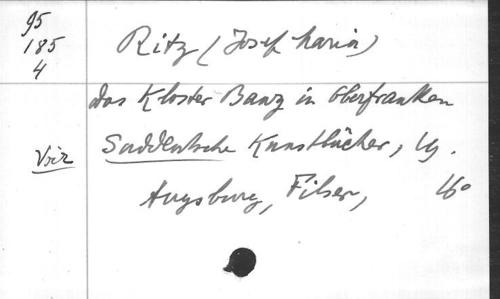 95
185
4
Ritz (Josef Maria)
Das Kloster Banz in Oberfranken
Voir
Süddeutsche Kunstbücher, 19.
Augsburg, Filser, 16°